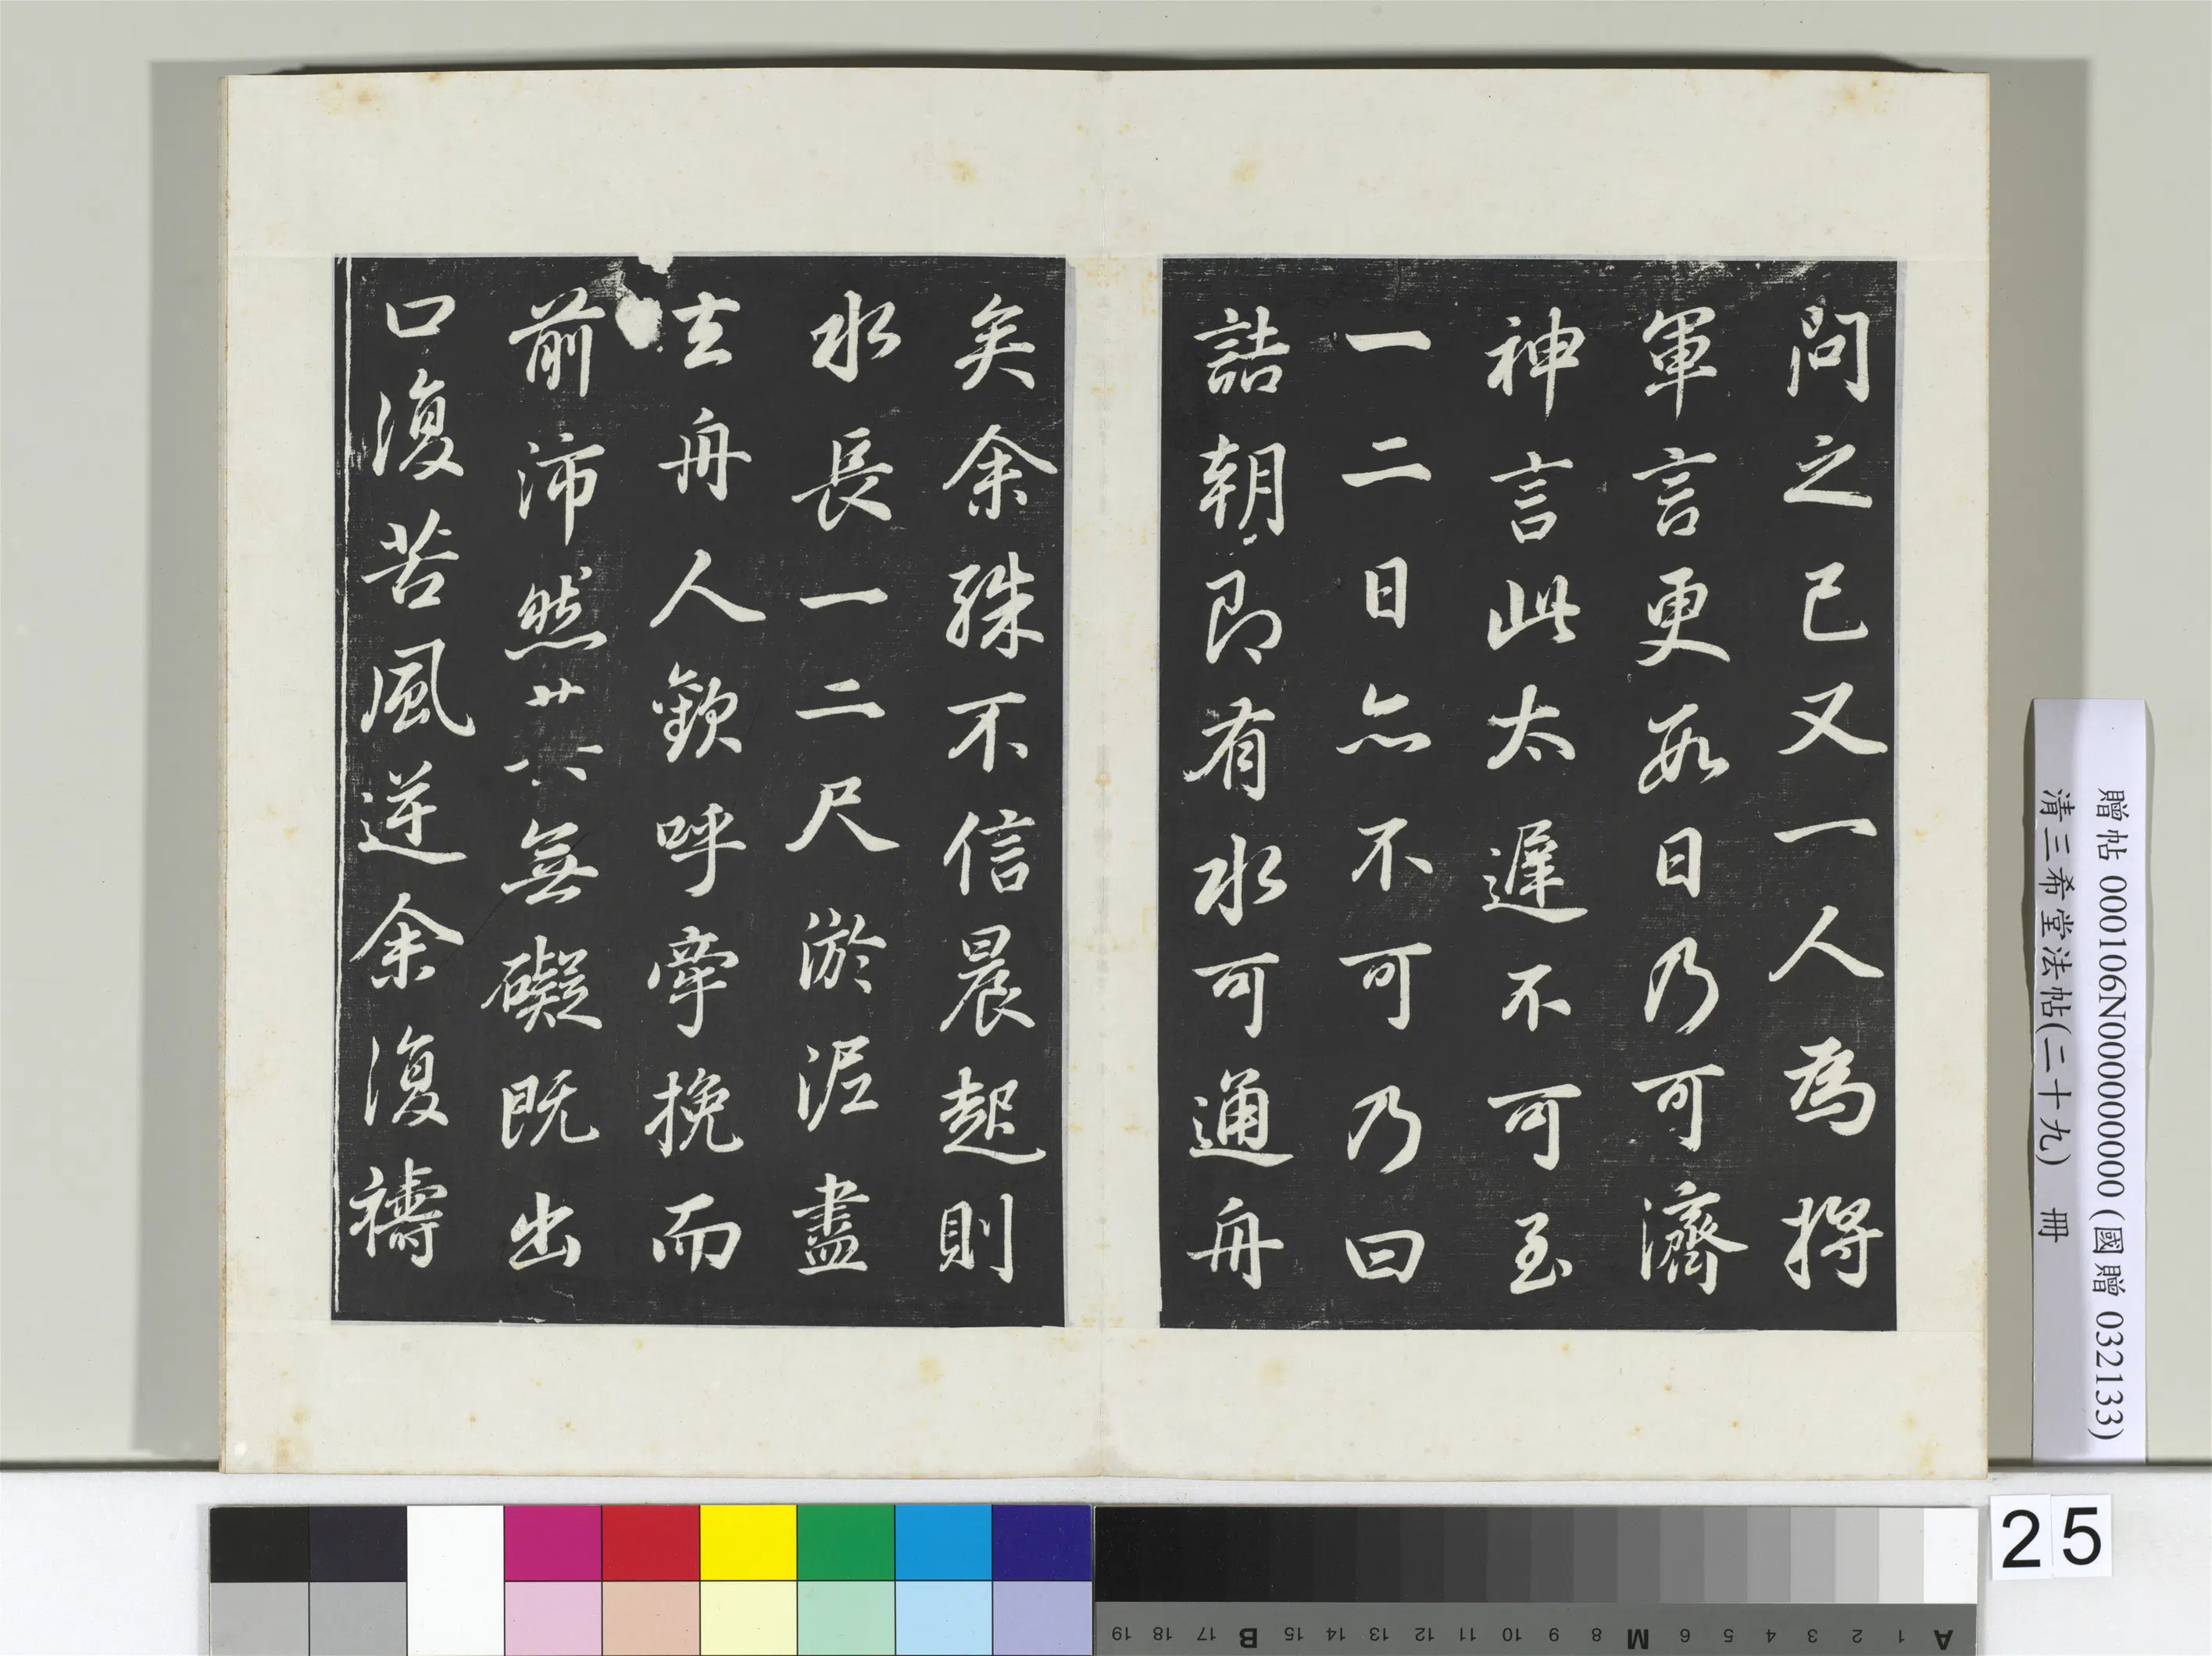 問之已又一人為將
軍言更數日乃可濟
神言此太遲不可至
一二日亦不可乃曰
詰朝即有水可通舟
矣余殊不信晨起則
水長一二尺淤泥盡
去舟人歡呼牽挽而
前沛然廿六無礙既出
口復苦風逆余復禱
贈帖 000106N000000000 (國贈 032133)
清三希堂法帖(二十九) 冊
25
A 1 2 3 4 5 6 M 8 9 10 11 12 13 14 15 B 17 18 19